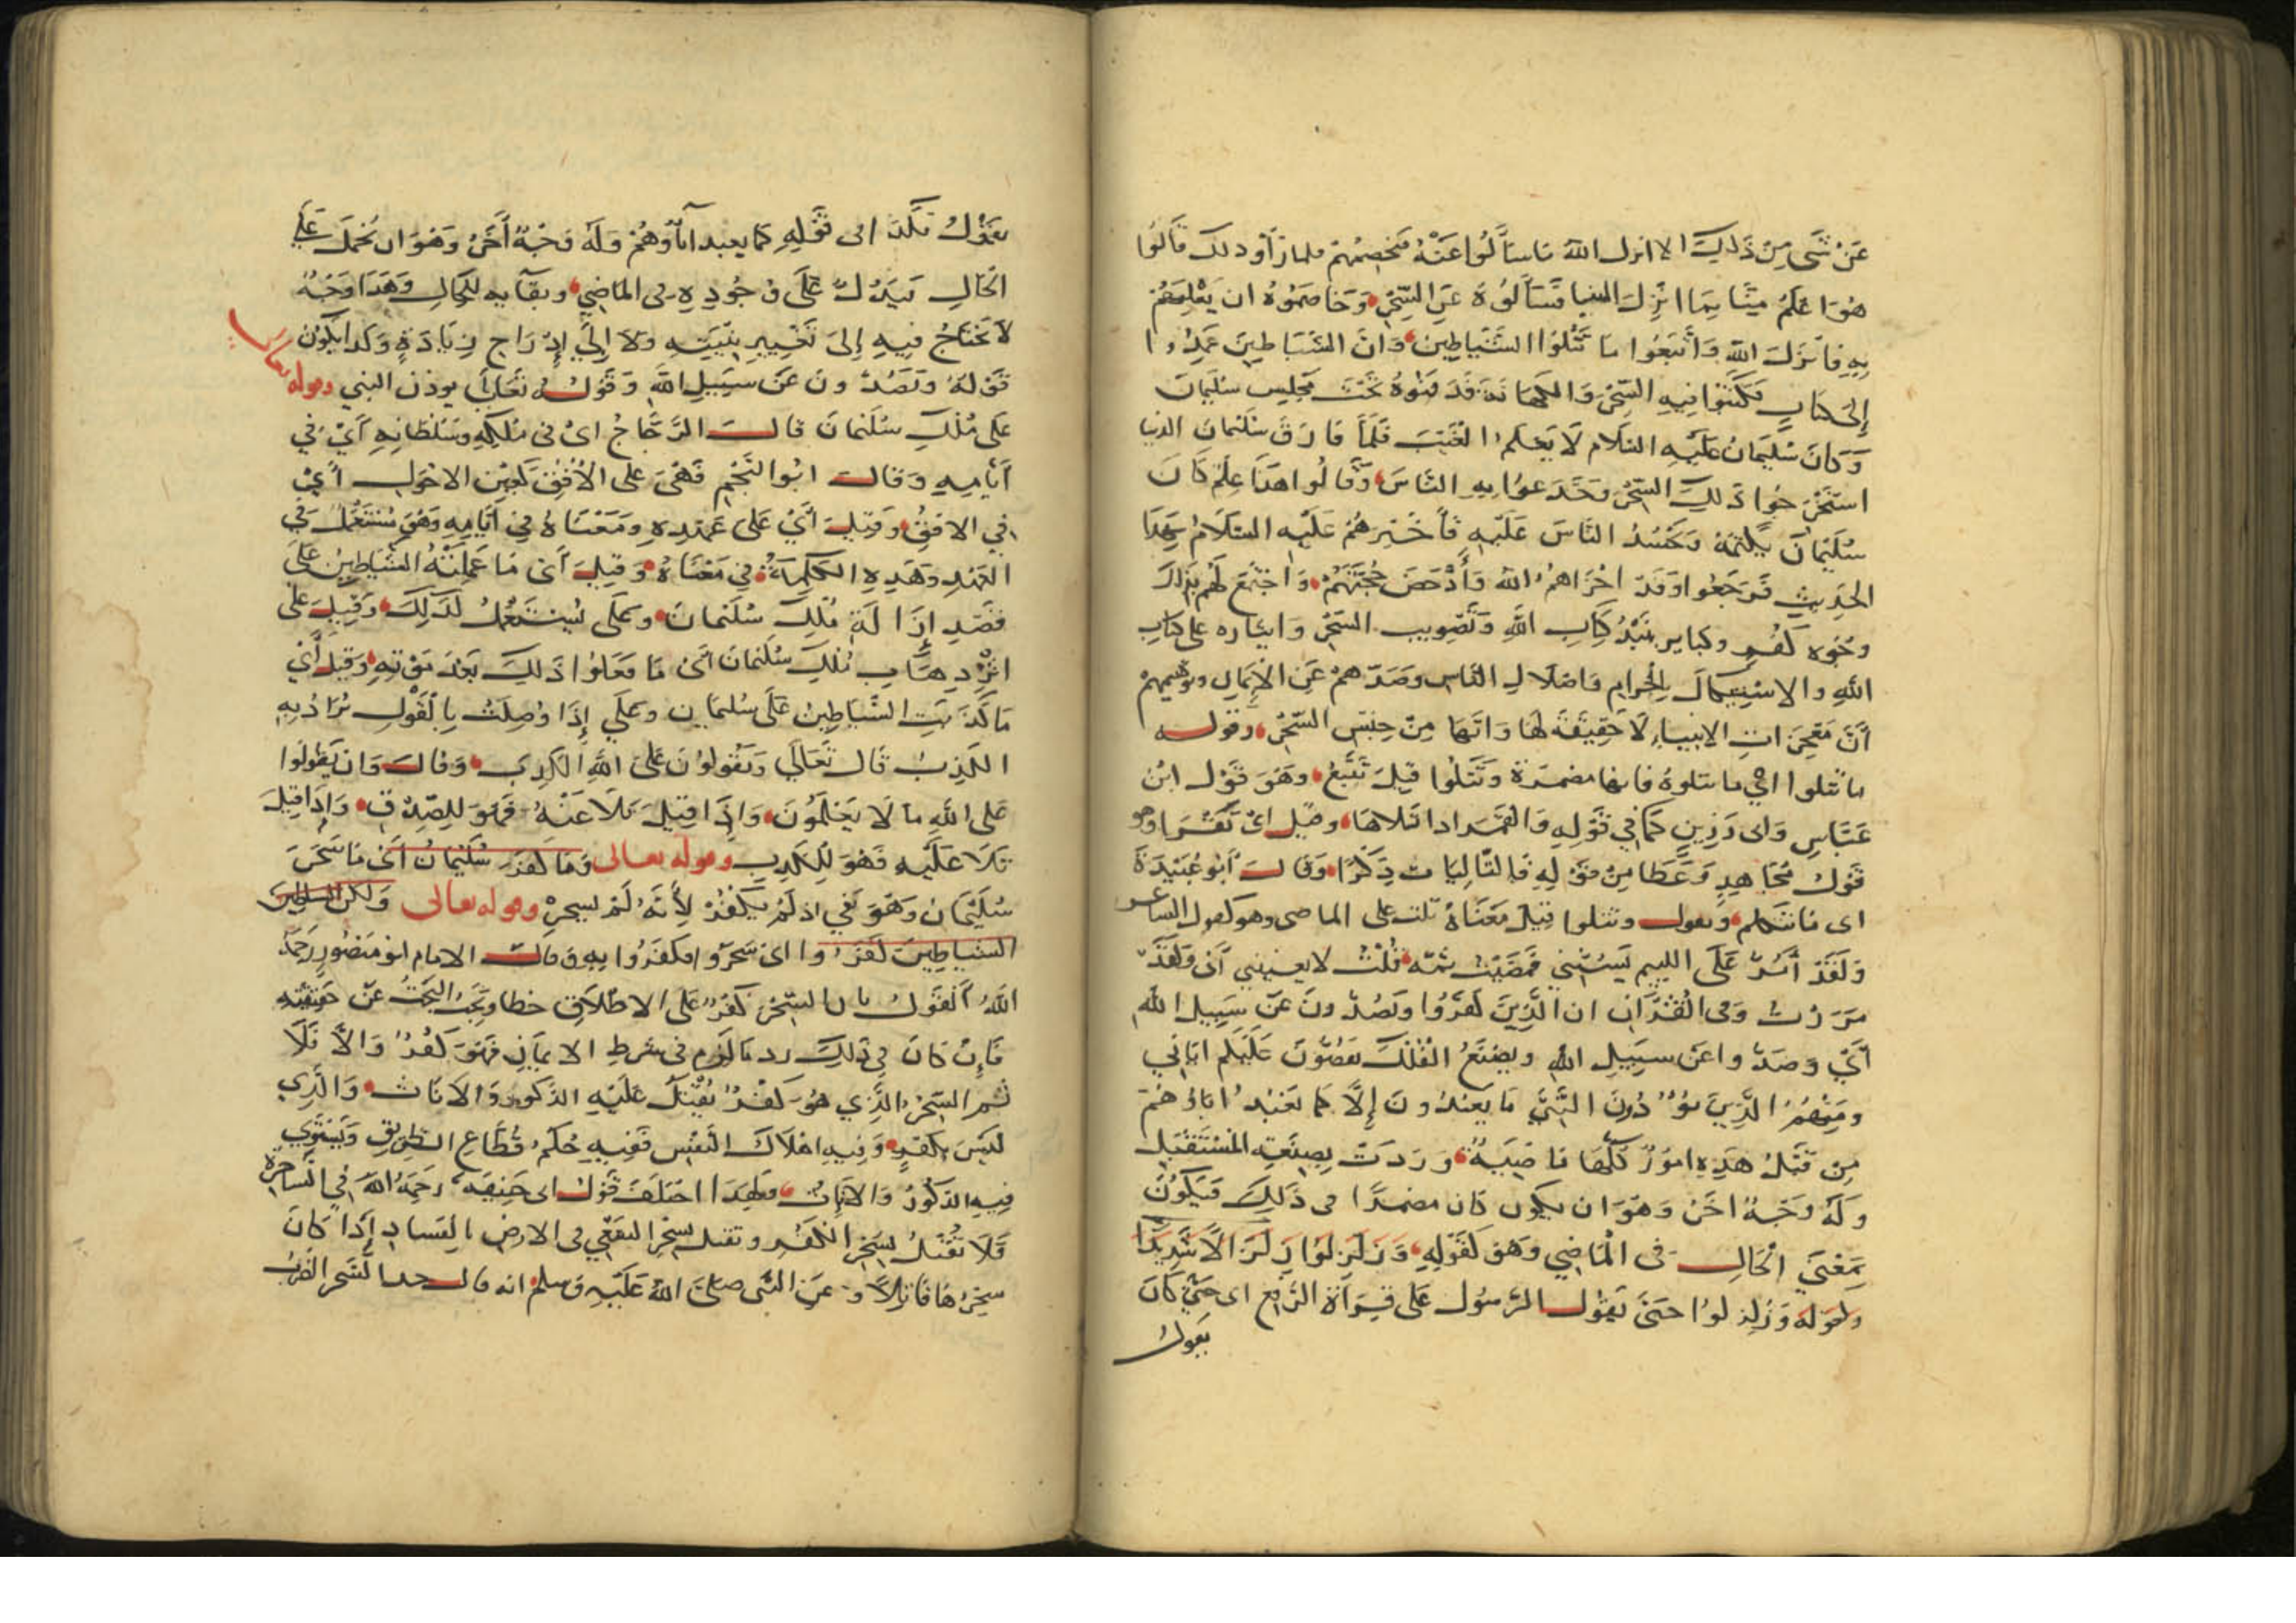 عن شى من ذلك الا انزل الله ما سألوا عنه فيخصمهم فلما رأوا ذلك قالوا
هو اعلم منا بما انزل الينا فسألوه عن السحر وخاصموه ان يعلمهم
به فانزل الله واتبعوا ما تتلوا الشياطين وان الشياطين عمدوا
الى كتاب فكتبوا فيه السحر والكهانة فدفنوه تحت مجلس سليمان
وكان سليمان عليه السلام لا يعلم الغيب فلما فارق سليمان الدنيا
استخرجوا ذلك السحر وخدعوا به الناس وقالوا هذا علم كان
سليمان يكتمه ويحسد الناس عليه فأخبرهم عليه السلام بهذا
الحديث فرجعوا وقد اخزاهم الله وأدحض حجتهم واجتمع لهم بذلك
وجوه كفر وكباير نبذ كتاب الله وتصويب السحر وايثاره على كتاب
الله والاستيكال بالحرام واضلال الناس وصدهم عن الايمان وتوهيمهم
أن معجزات الانبياء لا حقيقة لها وانها من جنس السحر وقوله
ما تتلوا اي ما تتلوه فانها مضمرة وتتلوا قيل تتبع وهو قول ابن
عباس وابى رزين كما في قوله والقمر اذا تلاها وقيل اى تقرا وهو
قول مجاهد وعطا من قوله فالتاليات ذكرا وقال أبو عبيدة
اى ما تتكلم ويقول وتتلوا قيل معناه تلت على الماضى وهو كقول الشاعر
ولقد أمر على اللييم يسبني فمضيت ثمه قلت لا يعنيني أى ولقد
مررت وفى القرآن ان الذين كفروا ويصدون عن سبيل الله
أي وصدوا عن سبيل الله ويصنع الفلك يقصون عليكم اياتي
ومنهم الذين يؤذون النبي ما يعبدون إلا كما يعبد اباؤهم
من قبل هذه امور كلها ماضية وردت بصيغة المستقبل
وله وجه اخر وهو ان يكون كان مضمرا فى ذلك فيكون
بمعنى الحال فى الماضي وهو كقوله وزلزلوا زلزالا شديدا
ولقوله وزلزلوا حتى يقول الرسول على قراة الرفع اى حتى كان
يقول
يقول وكذا فى قوله كما يعبد اباؤهم وله وجه أخر وهو ان يحمل على
الحال فيدل على وجوده فى الماضي وبقايه للحال وهذا وجه
لا يحتاج فيه إلى تغيير بنيته ولا إلى إدراج زيادة وكذا يكون
قوله وتصدون عن سبيل الله وقوله تعالى يوذن النبي وقوله تعالى
على ملك سليمان قال الزجاج اى فى ملكه وسلطانه أي في
أيامه وقال ابو النجم فهى على الأفق كعين الاحول أي
في الافق وقيل أي على عهده ومعناه في أيامه وهو مستعمل في
العهد وهذه الكلمة في معناه وقيل أى ما عملته الشياطين على
قصد إزالة ملك سليمان وعلى يستعمل لذلك وقيل على
اثر ذهاب ملك سليمان أى ما فعلوا ذلك بعد موته وقيل أي
ما كذبت الشياطين على سليمان وعلى إذا وصلت بالقول تراد به
الكذب قال تعالى ويقولون على الله الكذب وقال وان يقولوا
على الله ما لا يعلمون واذا قيل تلا عنه فهو للصدق واذا قيل
تلا عليه فهو للكذب وقوله تعالى وما كفر سليمان أى ما سحر
سليمان وهو نفي اذ لم يكفر لأنه لم يسحر وقوله تعالى ولكن الشياطين
الشياطين كفروا اى سحروا فكفروا به وقال الامام ابو منصور رحمه
الله القول بان السحر كفر على الاطلاق خطا ويجب البحث عن حقيقته
فإن كان في ذلك رد ما لزم فى شرط الايمان فهو كفر والا فلا
ثم السحر الذي هو كفر يقتل عليه الذكور والاناث والذي
ليس بكفر وفيه اهلاك النفس ففيه حكم قطاع الطريق ويستوي
فيه الذكور والاناث ولهذا اختلف قول ابى حنيفه رحمه الله في الساحرة
فلا تقتل لسحر الكفر وتقتل لسحر السعي فى الارض بالفساد إذا كان
سحرها قاتلا وعن النبى صلى الله عليه وسلم انه قال حد السحر الضرب